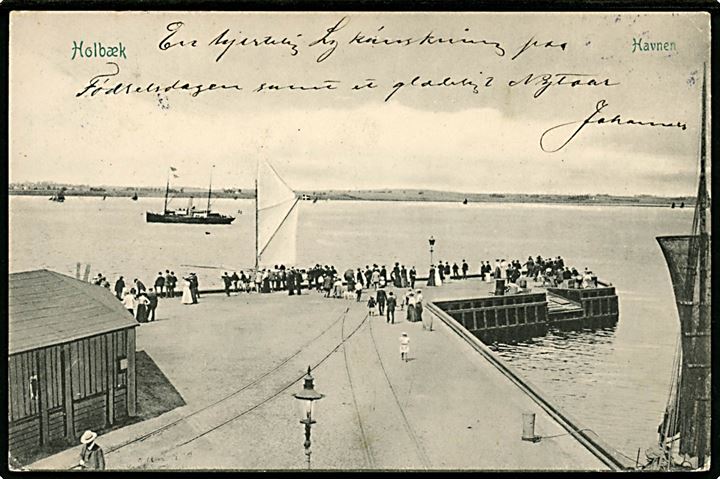 Holbæk
Havnen
En hjertelig Lykønskning paa
Fødselsdagen samt et glædeligt Nytaar
Johannes